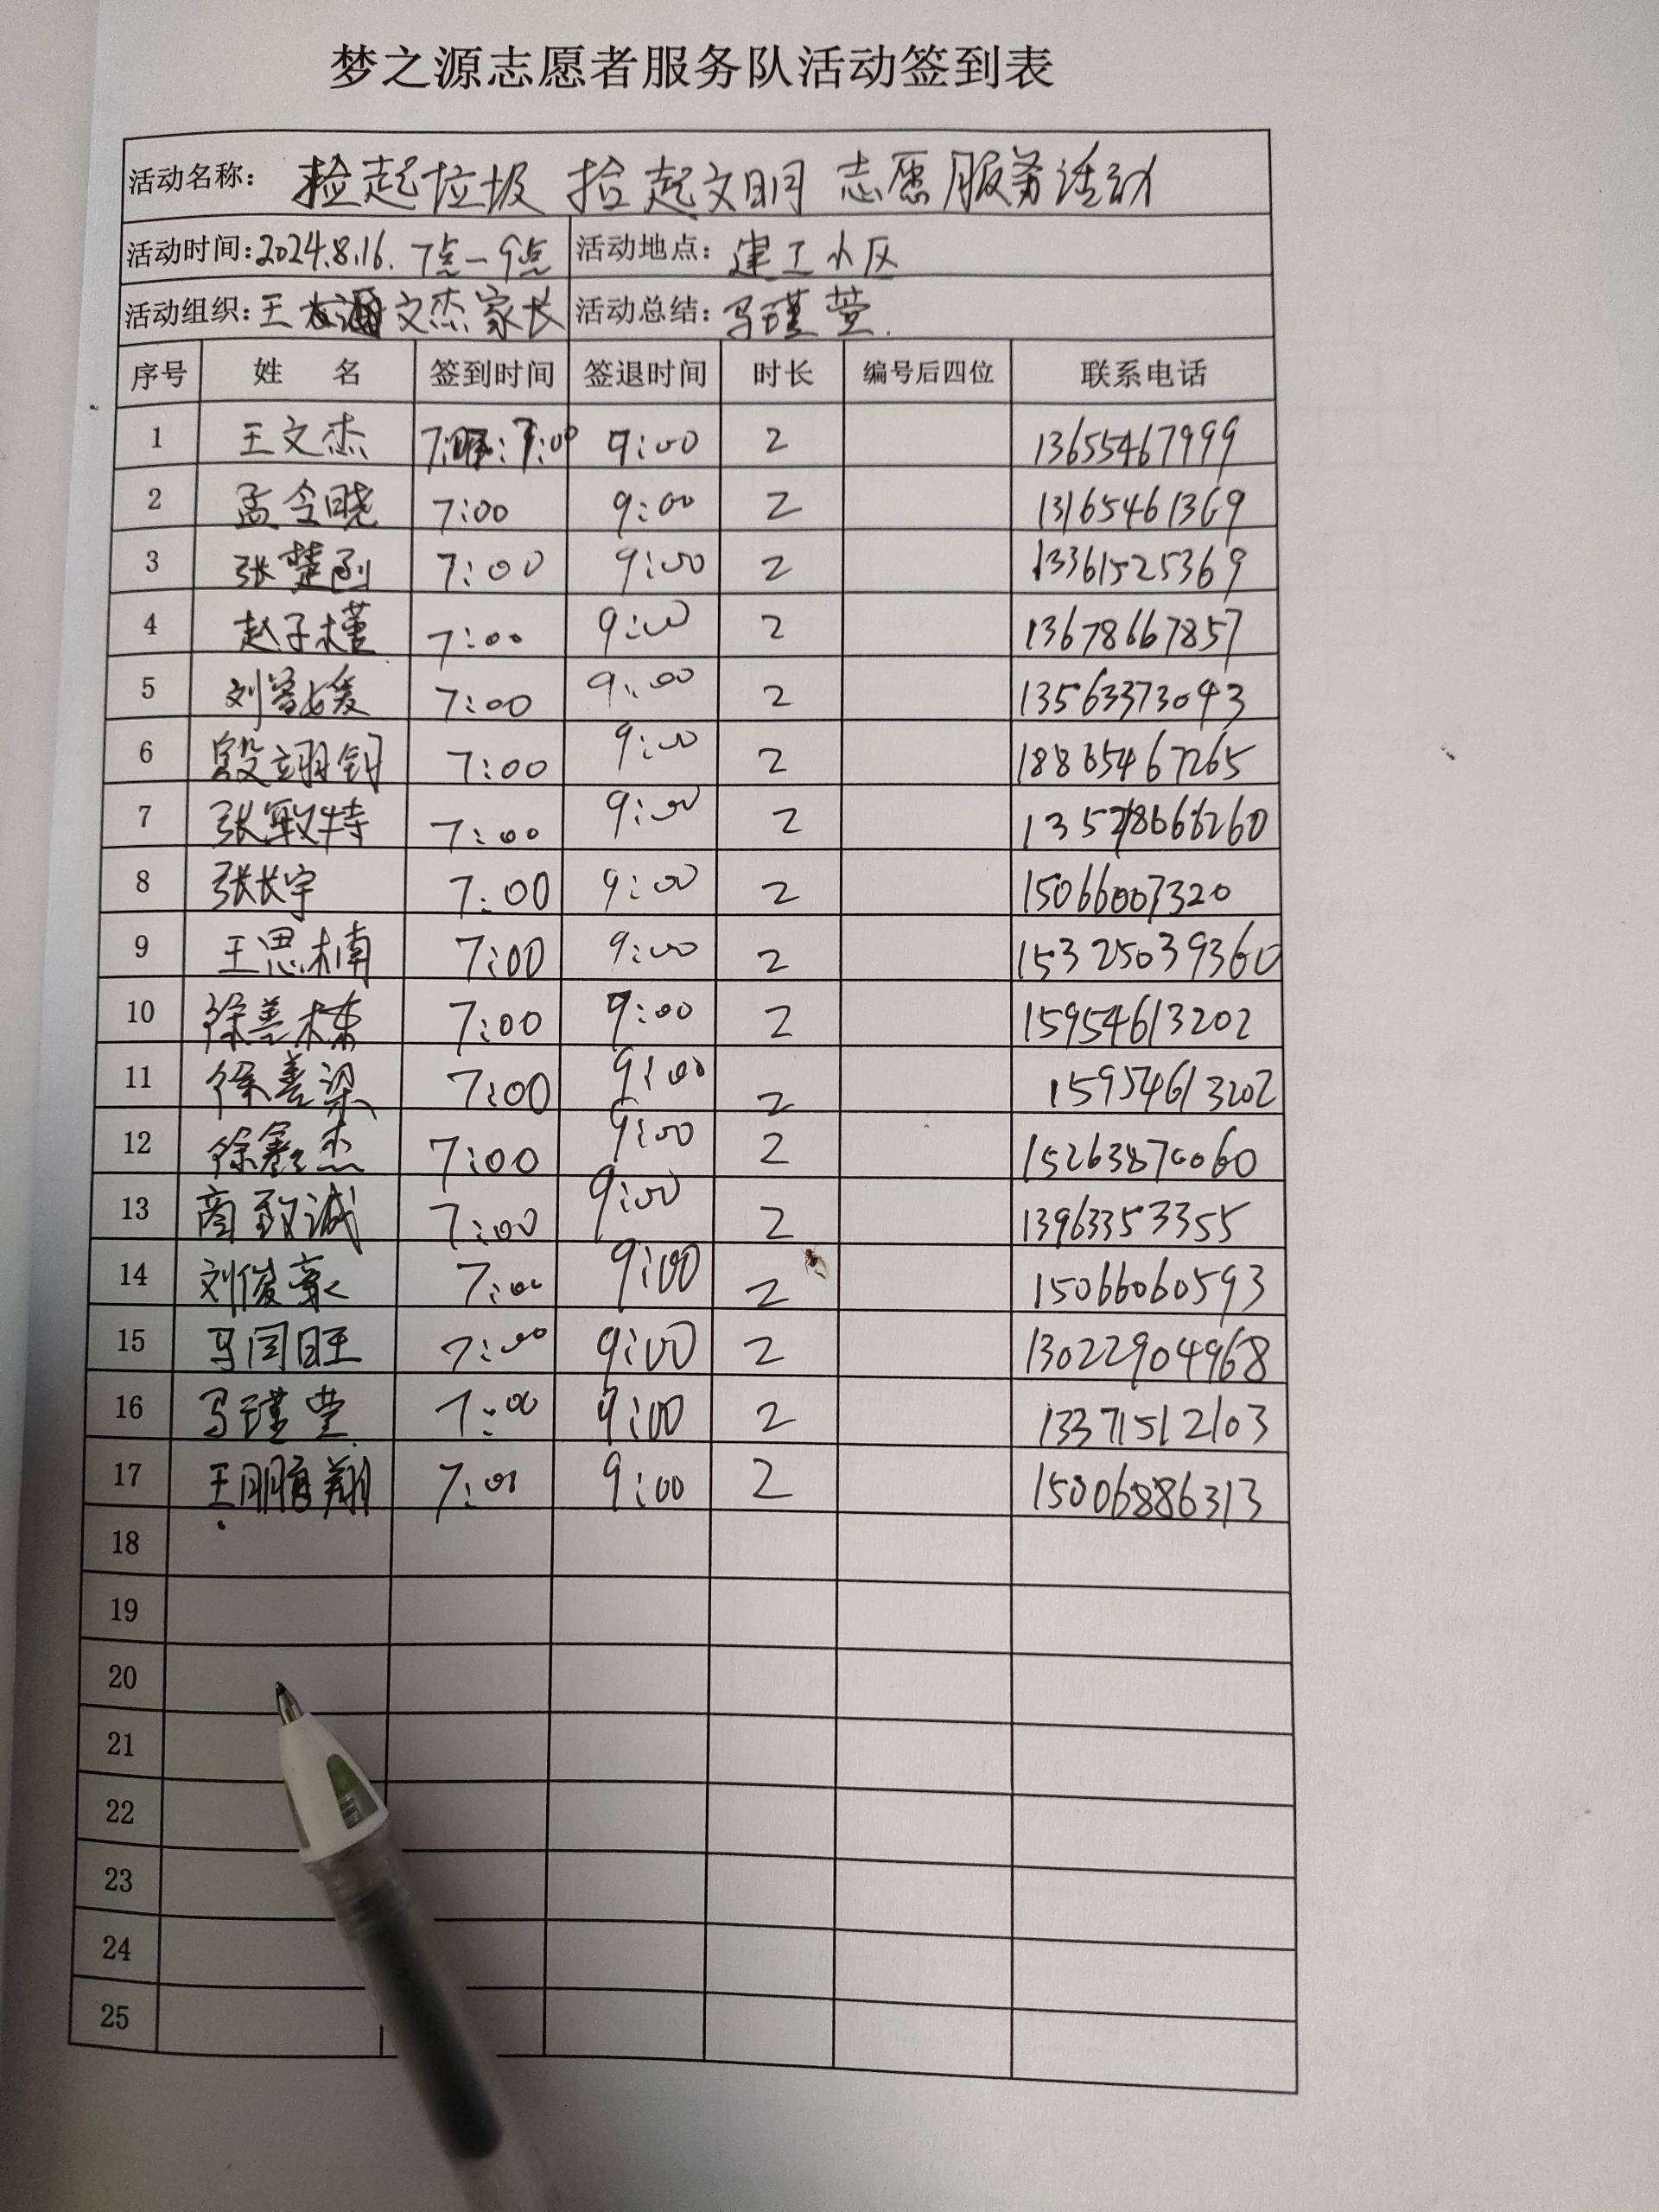 梦之源志愿者服务队活动签到表
活动名称: 捡起垃圾 捡起文明 志愿服务活动
活动时间:2024.8.16. 7点—9点 活动地点: 建工小区
活动组织:王文杰家长 活动总结: 马瑾萱.
序号 姓 名 签到时间 签退时间 时长 编号后四位 联系电话
1 王文杰 7:00 9:00 2 13655467999
2 孟令晓 7:00 9:00 2 13165461369
3 张楚函 7:00 9:00 2 13361525369
4 赵子槿 7:00 9:00 2 13678667857
5 刘曾媛 7:00 9:00 2 13563373043
6 7:00 9:00 2 18865467265
7 张敬特 7:00 9:00 2
8 张长宇 7:00 9:00 2 15066007320
9 王思楠 7:00 9:00 2 15325039360
10 徐善栋 7:00 9:00 2 15954613202
11 徐善梁 7:00 9:00 2 15954613202
12 7:00 9:00 2 15263870060
13 商致诚 7:00 9:00 2 13963353355
14 刘俊豪 7:00 9:00 2 15066060593
15 马闰旺 7:00 9:00 2 13022904968
16 马瑾萱 7:00 9:00 2 13371512103
17 王鹏翔 7:00 9:00 2 15006886313
18
19
20
21
22
23
24
25